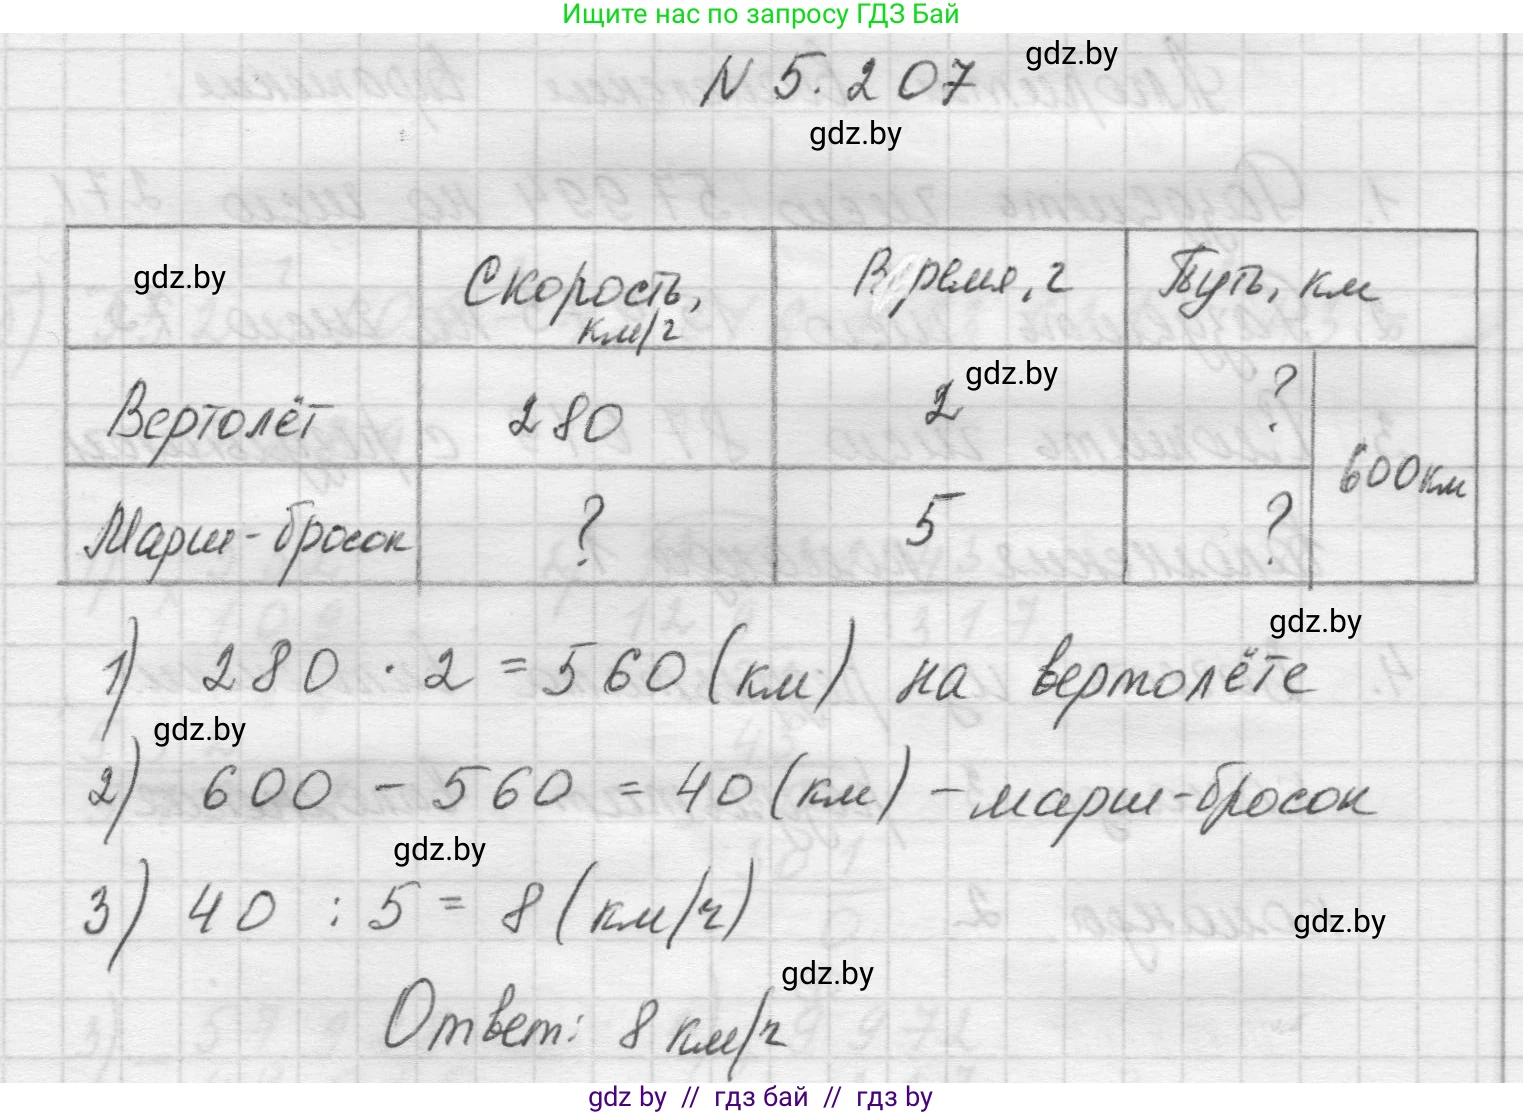 Ищите нас по запросу ГДЗ Бай
gdz.by
N 5.207
gdz.by
gdz.by
Скорость, км/г
Время, г
Путь, км
gdz.by
Вертолёт 280 2 ?
600км
Марш-бросок ? 5 ?
gdz.by
1) 280 · 2 = 560 (км) на вертолёте
gdz.by
2) 600 - 560 = 40 (км) - марш-бросок
gdz.by
3) 40 : 5 = 8 (км/ч)
gdz.by
gdz.by
Ответ: 8 км/ч
gdz by // гдз бай // гдз by